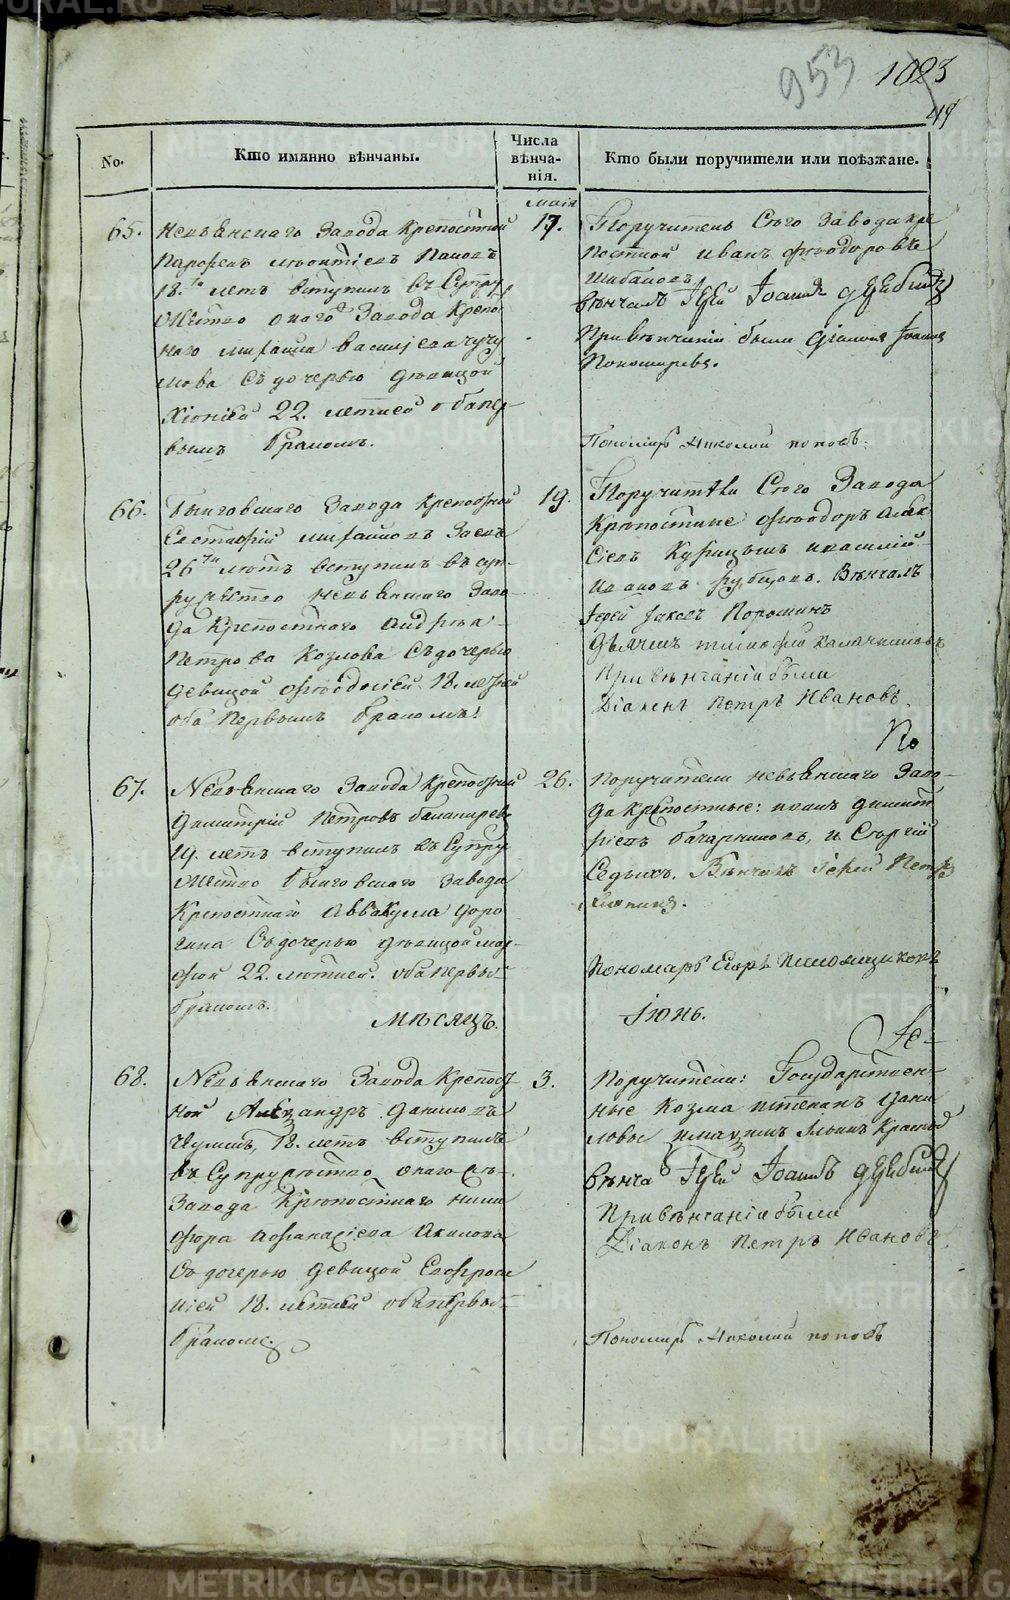 953
1023
49
No.
Кто имянно вѣнчаны.
Числа
вѣнча-
нія.
Кто были поручители или поѣзжане.
маія
65.
Невьянскаго Завода крепостной
Парфенъ Леонтіевъ Пановъ
18.ти летъ вступилъ въ Супру
жество онаго Завода Крепо
наго Михайла Васильева Чучу
мова Съ дочерью девицей
Хіоніей 22. летней оба пер-
вымъ бракомъ.
17.
Поручитель Сего Завода кре
постной Иванъ Феодоровъ
Шибановъ
вѣнчалъ Іерей Іоаннъ
При вѣнчаніи были Іоаннъ
Пономаревъ.
Пономарь Николай Поповъ.
66.
Быньговскаго Завода крепостной
Евстафій Михайловъ Заевъ
26 ти летъ вступилъ въ суп-
ружество Невьянскаго Заво
да крепостнаго Андрея
Петрова Козлова Съ дочерью
девицей Феодосіей 18. летней
оба первымъ бракомъ.
19.
Поручители Сего Завода
Крепостные Феодоръ Алек
сіевъ и Василій
Ивановъ Рубцовъ. Вѣнчалъ
Іерей Іаковъ Поромиνъ
При вѣнчаніи были
Діаконъ Петръ Ивановъ.
По
67.
Невьянскаго Завода Крепостной
Димитрій Петровъ
19. летъ вступилъ въ Супру
жество Быньговскаго Завода
Крепостнаго Аввакума Доро
нина Съ дочерью девицей Мар-
фой 22. летней. оба первы-
бракомъ.
26.
Поручители Невьянскаго Заво-
да Крепостные: Димит
ріевъ и Сергій
Седыхъ. Вѣнчалъ Іерей Петръ
Пономарь Егоръ
Мѣсяцъ.
Іюнь.
Іе-
68.
Невьянскаго Завода Крепост
ной Александръ Даниловъ
Чумин, 18. летъ вступилъ
въ Супружество онаго же
Завода Крепостнаго Ники
фора Афанасіева Акилова
Съ дочерью девицей Евфроси
ніей 18. летней оба первы-
бракомъ.
3.
Поручители: Государствен-
ные Козма Степанъ Дани
ловы Ильинъ
вѣнча Іерей Іоаннъ
При вѣнчаніи были
Діаконъ Петръ Ивановъ.
Пономарь Николай Поповъ
METRIKI.GASO-URAL.RU